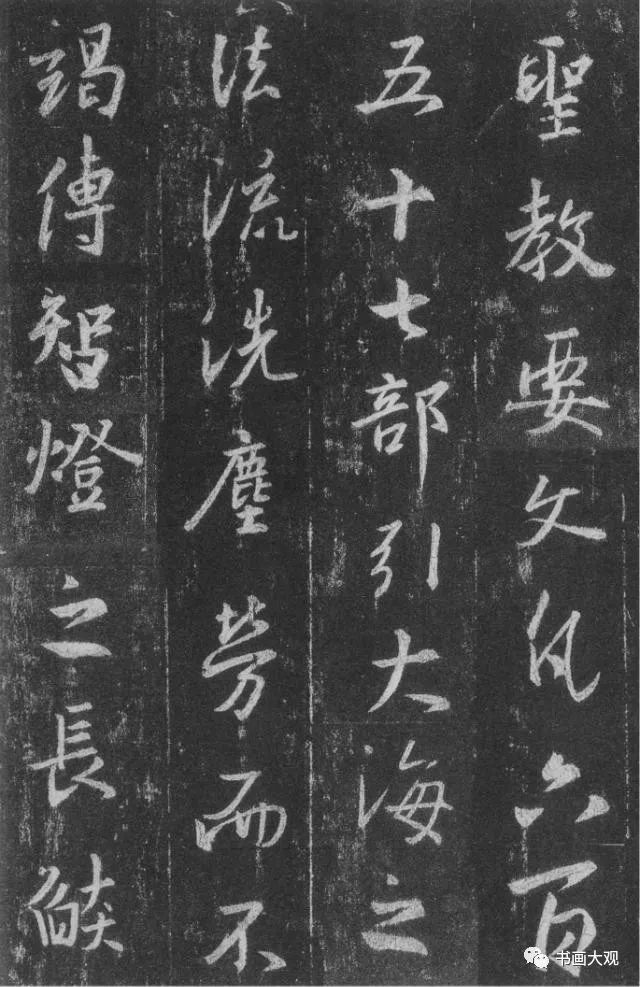 聖教要文凡六百
五十七部引大海之
法流洗塵勞而不
竭傳智燈之長燄
书画大观